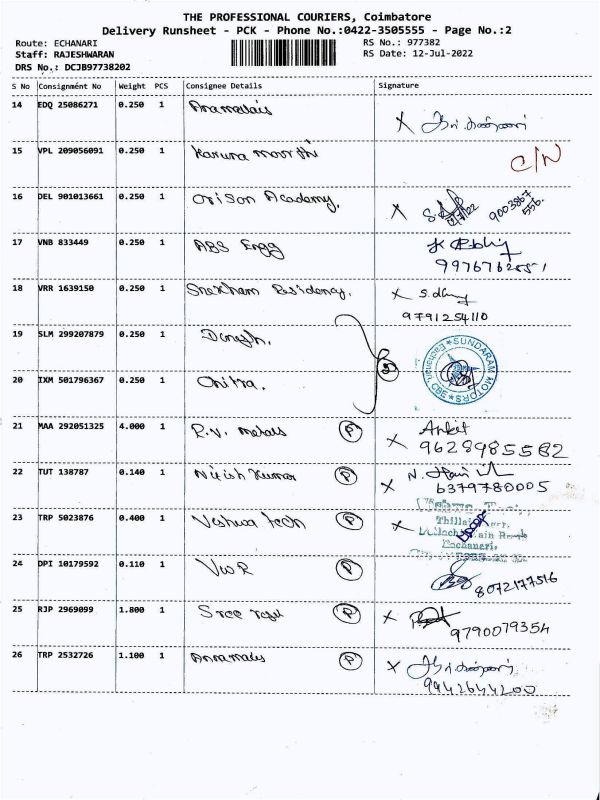 THE PROFESSIONAL COURIERS, Coimbatore
Delivery Runsheet - PCK - Phone No.:0422-3505555 - Page No.:2
Route: ECHANARI
RS No.: 977382
Staff: RAJESHWARAN
RS Date: 12-Jul-2022
DRS No.: DCJB97738202
S No Consignment No Weight PCS Consignee Details Signature
14 EDQ 25086271 0.250 1 Annamalais X
15 VPL 209056091 0.250 1 Karuna moorthi C/N
16 DEL 901013661 0.250 1 Orison Academy. X 12/7/22 9003867
556.
17 VNB 833449 0.250 1 ABS Engg
18 VRR 1639150 0.250 1 Residency. X
9791254110
19 SLM 299207879 0.250 1 Danesh. SUNDARAM MOTORS CBE
20 IXM 501796367 0.250 1 2
21 MAA 292051325 4.000 1 R.V. metals P X Ankit
9628985582
22 TUT 138787 0.140 1 Nitish Kumar P X
6379780005
23 TRP 5023876 0.400 1 Veshwa tech P X
24 DPI 10179592 0.110 1 VWR P
8072177516
25 RJP 2969099 1.800 1 Sree P X
9790079354
26 TRP 2532726 1.100 1 Annamalais P X
9942644200